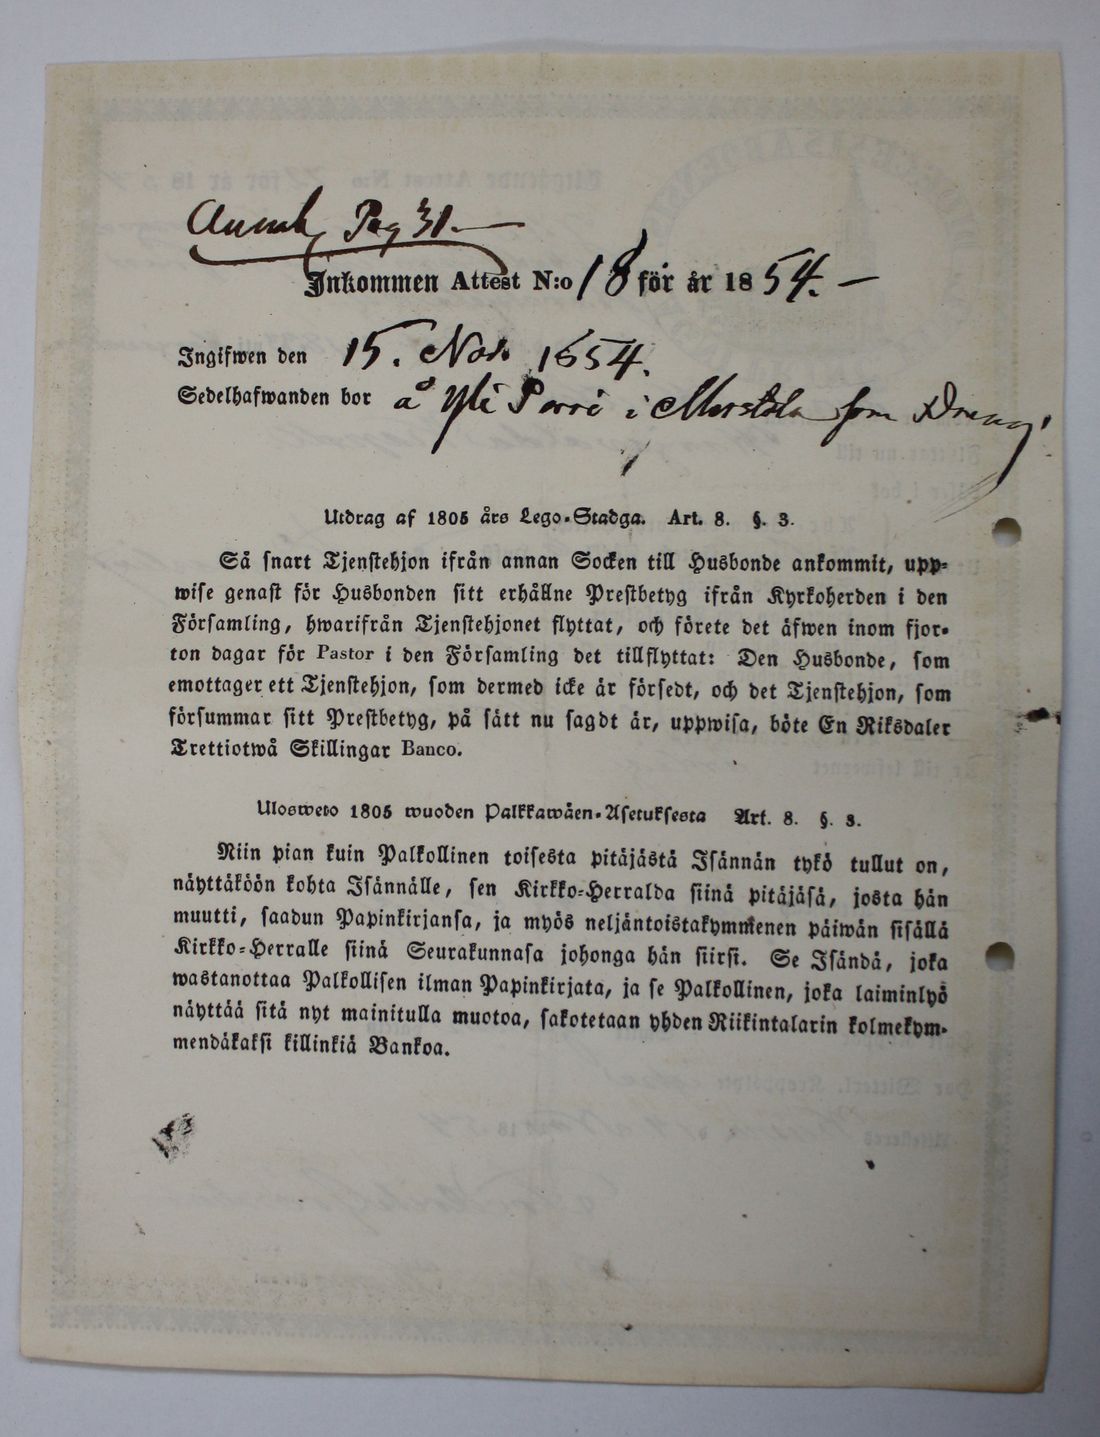 Pag 31.—
Inkommen Attest N:o 18 för år 1854.—
Ingifwen den 15. Nov. 1854.
Sedelhafwanden bor å Yli Parri i som Dreng
Utdrag af 1805 års Lego-Stadga. Art. 8. §. 3.
Så snart Tjenstehjon ifrån annan Socken till Husbonde ankommit, upp-
wise genast för Husbonden sitt erhållne Prestbetyg ifrån Kyrkoherden i den
Församling, hwarifrån Tjenstehjonet flyttat, och förete det äfwen inom fjor-
ton dagar för Pastor i den Församling det tillflyttat: Den Husbonde, som
emottager ett Tjenstehjon, som dermed icke är försedt, och det Tjenstehjon, som
försummar sitt Prestbetyg, på sätt nu sagdt är, uppwisa, böte En Riksdaler
Trettiotwå Skillingar Banco.
Ulosweto 1805 wuoden Palkkawäen-Asetuksesta Art. 8. §. 3.
Niin pian kuin Palkollinen toisesta pitäjästä Isännän tykö tullut on,
näyttäköön kohta Isännälle, sen Kirkko-Herralda siinä pitäjäsä, josta hän
muutti, saadun Papinkirjansa, ja myös neljäntoistakymmenen päiwän sisällä
Kirkko-Herralle siinä Seurakunnasa johonga hän siirsi. Se Isändä, joka
wastanottaa Palkollisen ilman Papinkirjata, ja se Palkollinen, joka laiminlyö
näyttää sitä nyt mainitulla muotoa, sakotetaan yhden Riikintalarin kolmekym-
mendäkaksi killinkiä Bankoa.